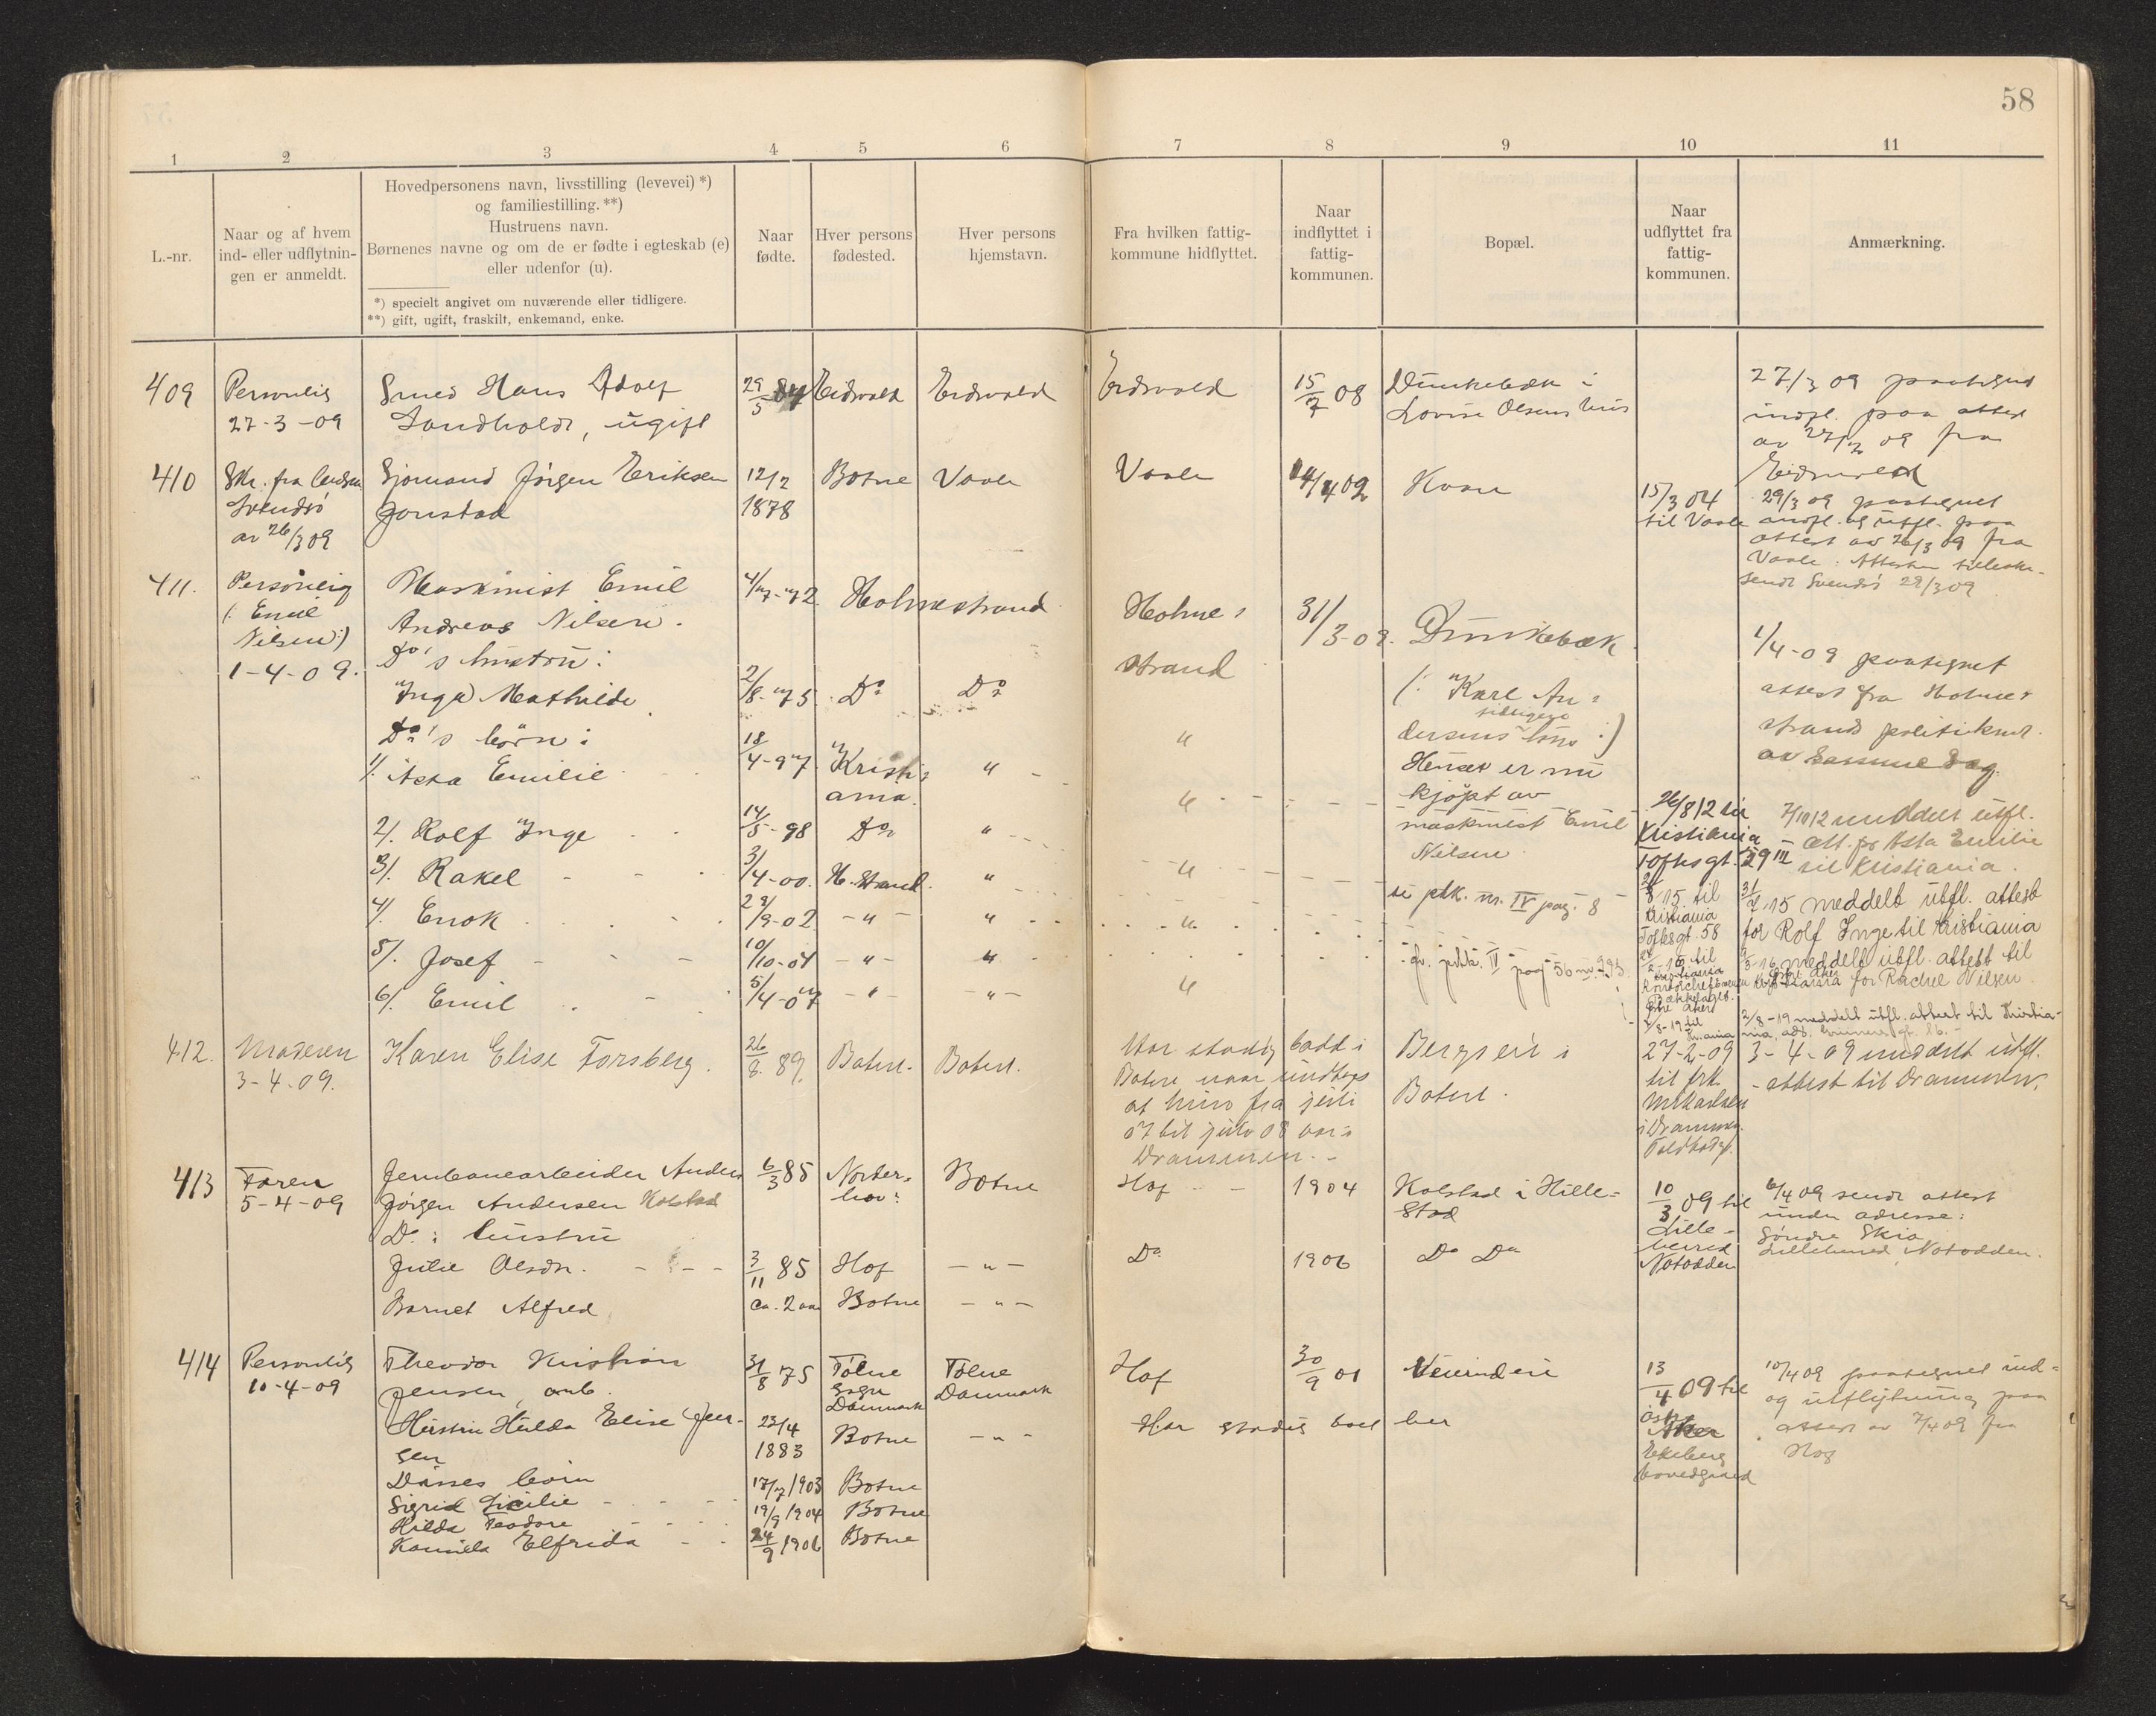 58
1 2 3 4 5 6 7 8 9 10 11
L.-nr.
Naar og af hvem
ind- eller udflytnin-
gen er anmeldt.
Hovedpersonens navn, livsstilling (levevei) *)
og familiestilling. **)
Hustruens navn.
Børnenes navne og om de er fødte i egteskab (e)
eller udenfor (u).
*) specielt angivet om nuværende eller tidligere.
**) gift, ugift, fraskilt, enkemand, enke.
Naar
fødte.
Hver persons
fødested.
Hver persons
hjemstavn.
Fra hvilken fattig-
kommune hidflyttet.
Naar
indflyttet i
fattig-
kommunen.
Bopæl.
Naar
udflyttet fra
fattig-
kommunen.
Anmærkning.
409
Personlig
27-3-09
Smed Hans Adolf
Sandholdt, ugift
29/5 84
Eidsvold
Eidsvold
Eidsvold
15/7 08
Dunkebæk i
Lovise Olsens hus
27/3 09 paategnet
indfl. paa attest
av 27/2 09 fra
Eidsvold
410
Skr. fra
Svendsö
av 26/3 09
Sjömand Jörgen Eriksen
Jonstad
12/2
1878
Botne
Vaale
Vaale
14/4 02
15/3 04
til Vaale
29/3 09 paategnet
indfl. og utfl. paa
attest av 26/3 09 fra
Vaale. Attesten tilbake-
sendt Svendsö 29/3 09
411.
Personlig
(: Emil
Nilsen :)
1-4-09.
Maskinist Emil
Andreas Nilsen.
Do's hustru:
Inga Mathilde
Do's börn:
1/. Asta Emilie
2/. Rolf Inge
3/. Rakel
4/. Enok
5/. Josef
6/. Emil
4/7-72.
2/8-75
18/4-97
14/5-98
3/4-00.
28/9-02
10/10-04
5/4-07
Holmestrand
Do Do
Kristi-
ania. "
Do "
H.strand. "
-"- "
-"- "
-"- -"-
Holme-
strand
31/3-09.
Dunkebæk
(: Karl An-
tidligere
dersens hus :)
Huset er nu
kjöpt av
maskinist Emil
Nilsen
se ptk. nr. IV pag. 8
26/8 12 til
Kristiania
Toftesgt. 29 III
8 15. til
Kristiania
Toftesgt. 58
Østre Aker
1/4-09 paategnet
attest fra Holme-
strands politikam.
av samme dag.
7/10 12 meddelt utfl.
att. for Asta Emilie
til Kristiania.
31/7.15 meddelt utfl. attest
for Rolf Inge til Kristiania
3-16 meddelt utfl. attest til
Østre Aker for Rachel Nilsen
2/8-19 meddelt utfl. attest til Kristia-
nia
412.
Moderen
3-4-09.
Karen Elise Forsberg.
26/8. 89.
Botne.
Botne.
Har stadig bodd i
Botne naar undtages
at hun fra juli
07 til juli 08 var i
Drammen.
i
Botne.
27-2-09
til frk.
Mikaelsen
i Drammen.
3-4-09 meddelt utfl.
attest til Drammen.
413
Faren
5-4-09
Jernbanearbeider Anders
Jörgen Andersen Kolstad
Do: hustru
Julie Olsdn.
Barnet Alfred
6/3 85
3/11 85
ca. 2 aar
Norder-
hov.
Hof
Botne
Botne
-"-
-"-
Hof
Do
1904
1906
Kolstad i Hille-
stad
Do Do
10/3 09 til
Lille-
herred
Notodden
6/4 09 sendt attest
under adresse:
Söndre Skia
Lilleherred, Notodden.
414
Personlig
10-4-09
Theodor Kristian
Jensen, arb.
Hustru Hulda Elise Jen-
sen
Disses börn
Sigrid Sicilie
Hilda Teodore
Kamilla Elfrida
31/8 75
23/4
1883
17/7 1903
19/9 1904
24/9 1906
Tolne
Sogn
Danmark
Botne
Botne
Botne
Botne
Tolne
Danmark
-"-
Hof
Har stadig boet her
30/9 01
13/4 09 til
Aker
Ekeberg
hovedgaard
10/4 09 paategnet ind-
og utflytning paa
attest av 7/4 09 fra
Hof